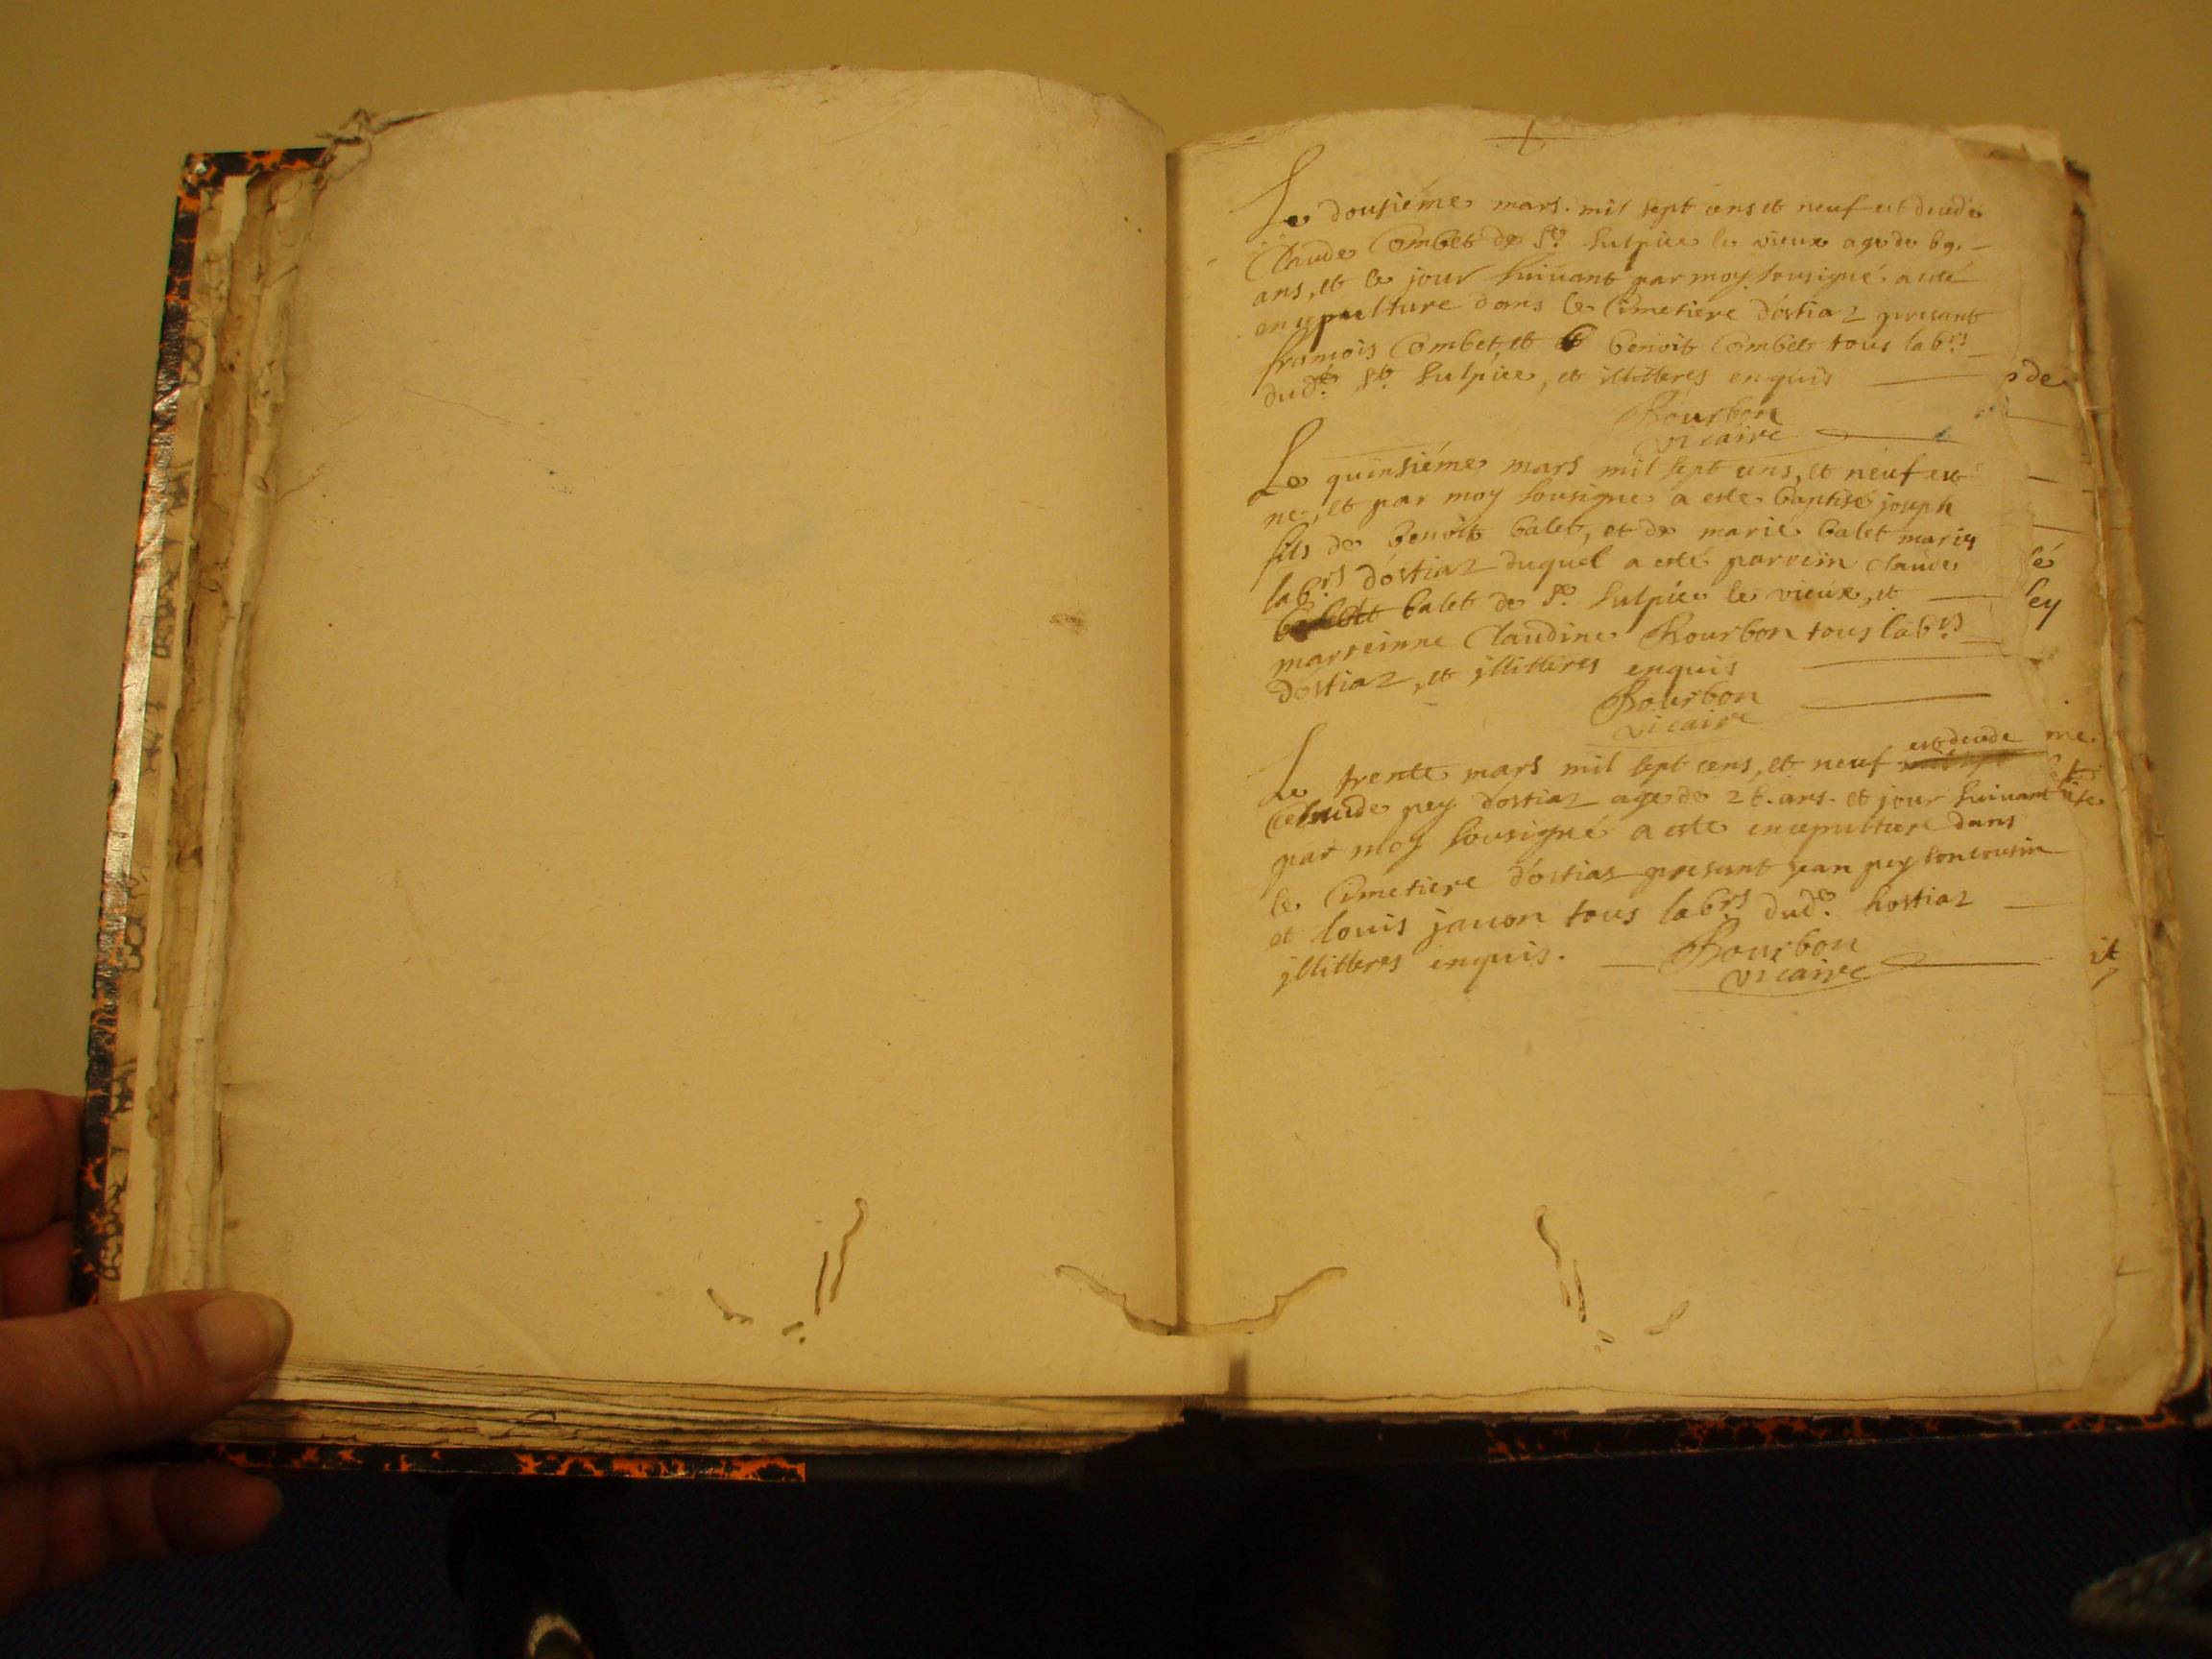 Le dousiéme mars. mil sept cens et neuf est decedé
Claude Combet de St. Sulpice le vieux age de 69. -
ans, et le jour suivant par moy sousigné a esté
ensepulture dans le Cimetiere d'ostiaz presant
francois Combet, et benoit Combet tous labrs
dudt. St. Sulpice, et illitteres enquis
Bourbon
vicaire
Le quinsiéme mars mil sept cens, et neuf est
né, et par moy sousigné a esté baptisé joseph
fils de benoit balet, et de marie balet mariés
labrs d'ostiaz duquel a esté parrein claude
balet de St. Sulpice le vieux, et
marreinne Claudine Bourbon tous labrs
d'ostiaz, et jllitteres enquis
Bourbon
vicaire
est decede
Le trente mars mil sept cens, et neuf
Claude pey d'ostiaz age de ans. et jour suivant
par moy sousigné a esté ensepulturé dans
le Cimetiere d'ostiaz presant jean pey son cousin
et louis jauon tous labrs dudt. hostiaz
jllitteres enquis. Bourbon
vicaire